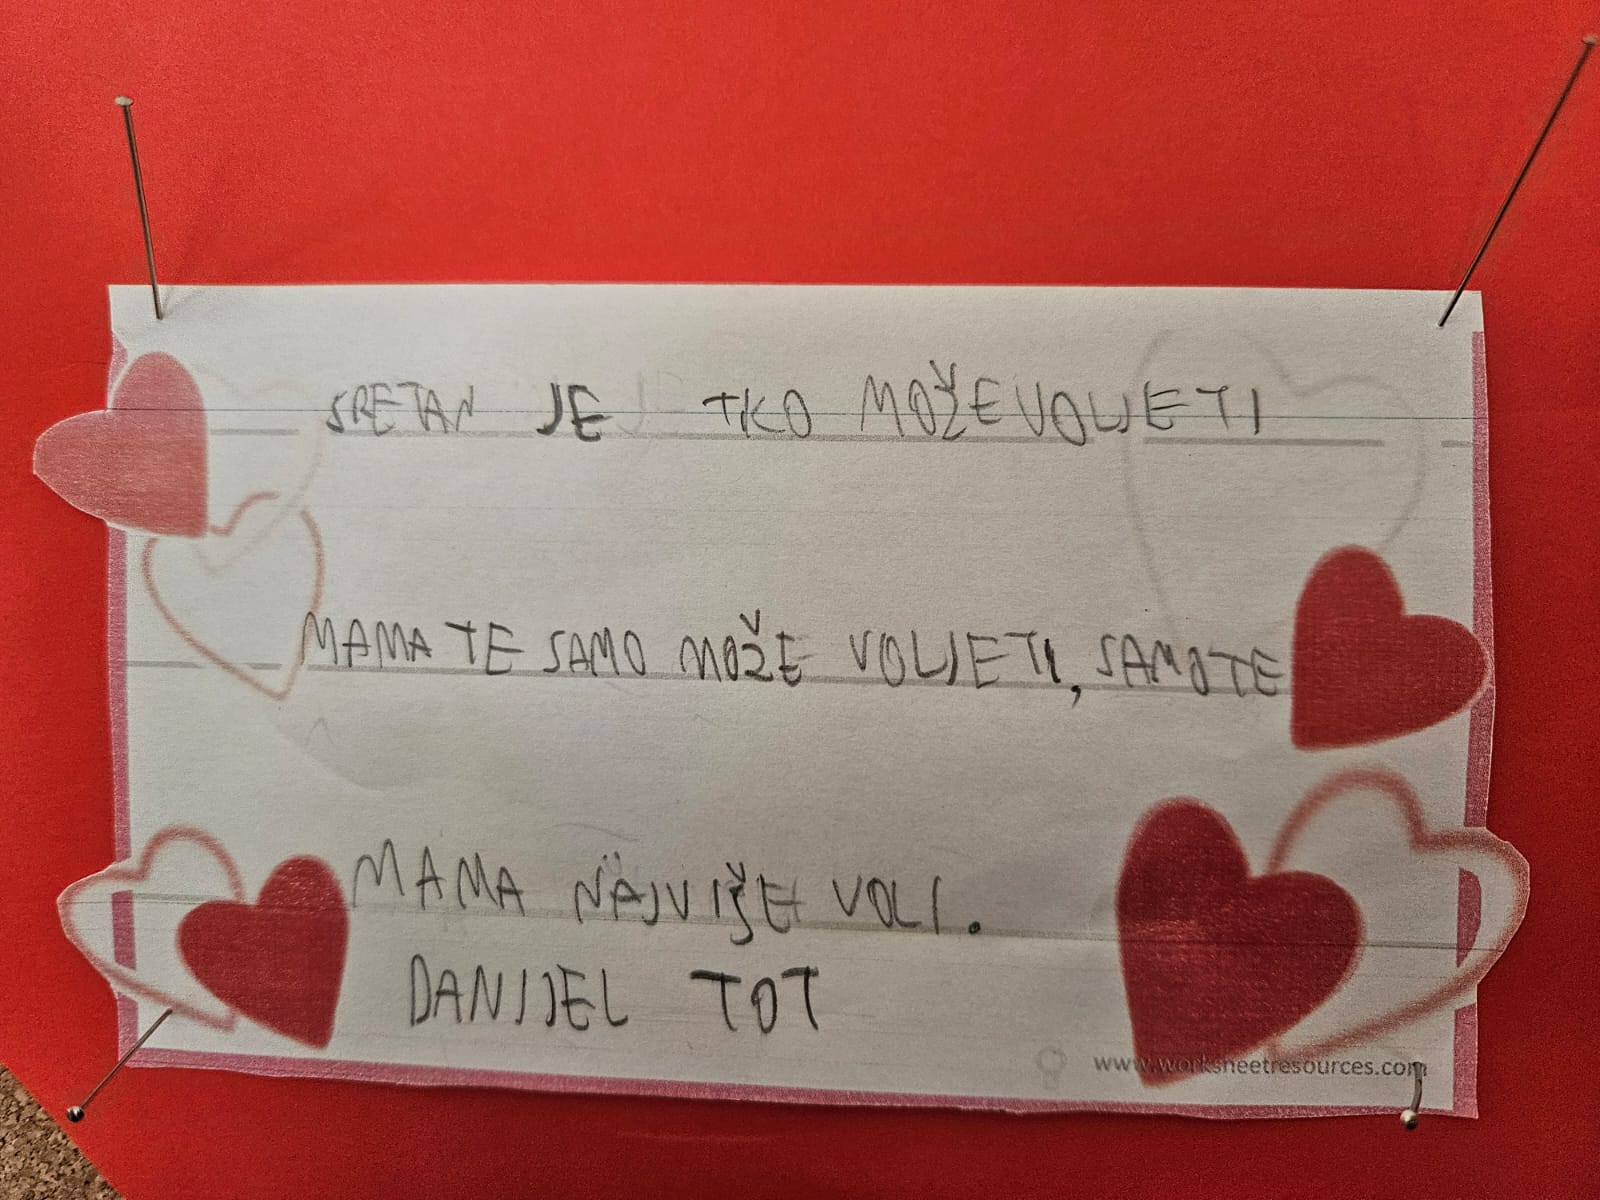 SRETAN JE TKO MOŽE VOLJETI
MAMA TE SAMO MOŽE VOLJETI, SAMO TE
MAMA NAJVIŠE VOLI.
DANIJEL TOT
www.worksheetresources.com